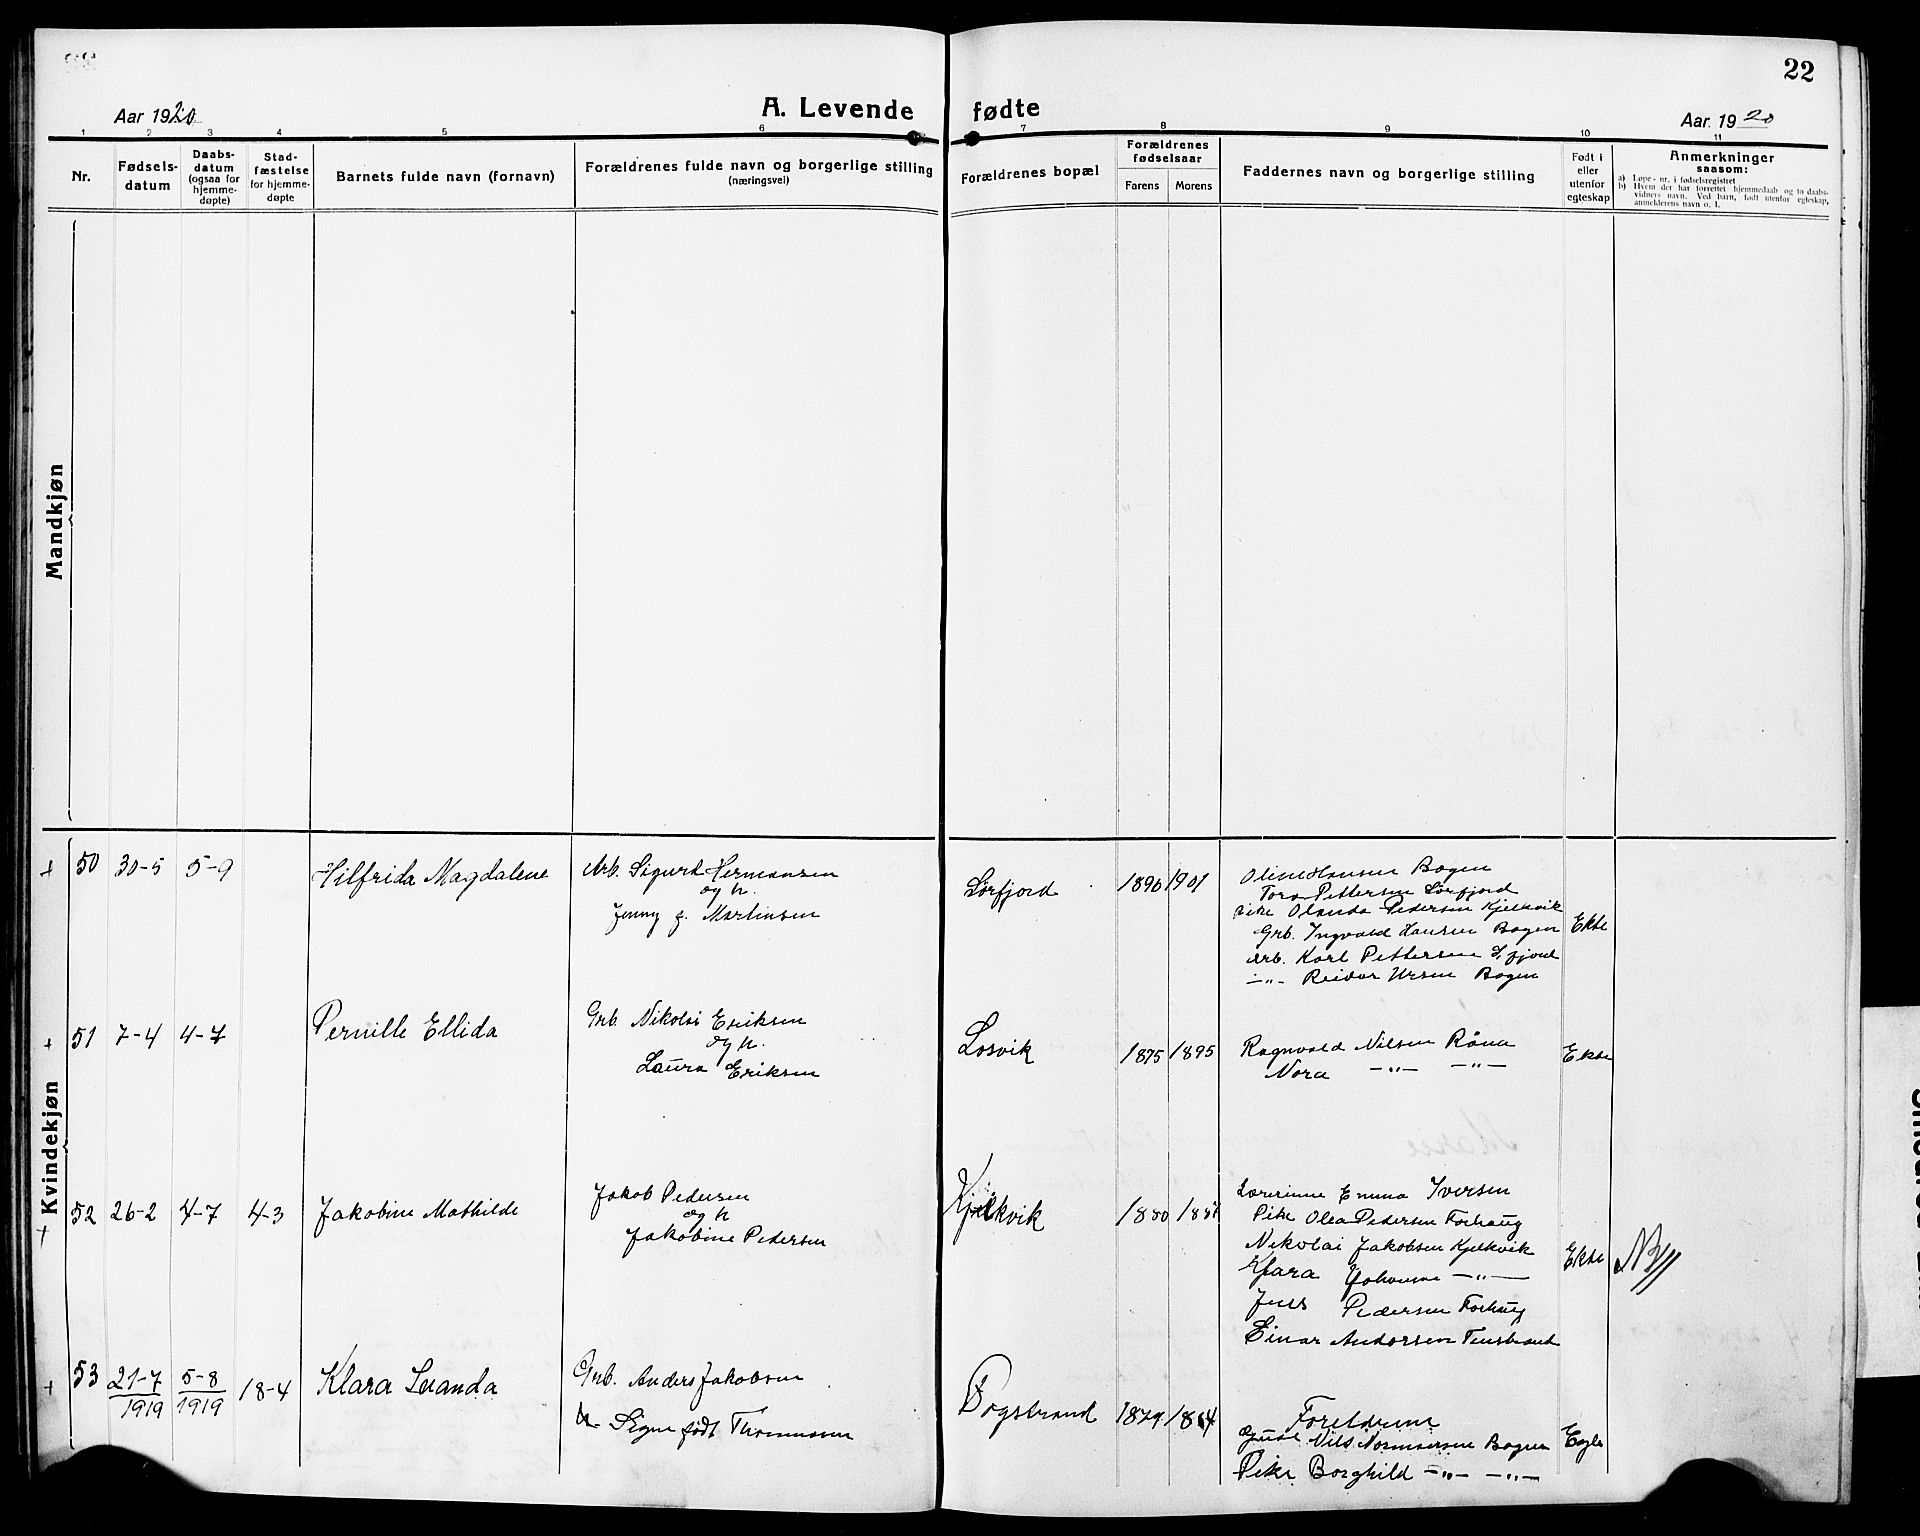 22
Aar 1920
A. Levende
fødte
Aar. 1920
1 2 3 4 5 6 7 8 9 10 11
Nr.
Fødsels-
datum
Daabs-
datum
(ogsaa for
hjemme-
døpte)
Stad-
fæstelse
for hjemme-
døpte
Barnets fulde navn (fornavn)
Forældrenes fulde navn og borgerlige stilling
(næringsvei)
Forældrenes bopæl
Forældrenes
fødselsaar
Farens Morens
Faddernes navn og borgerlige stilling
Født i
eller
utenfor
egteskap
Anmerkninger
saasom:
a) Løpe-nr. i fødselsregistret
b) Hvem der har forrettet hjemmedaab og to daabs-
vidners navn. Ved barn, født utenfor egteskap,
anmelderens navn o. l.
Mandkjøn
Kvindekjøn
+ 50 30-5 5-9
Hilfrida Magdalene
Arb. Sigurd Hermansen
og h.
Jenny f. Martinsen
Sörfjord
1890 1901
Oline Hansen Bogen
Tora Pettersen Sörfjord
Pike Olanda Pedersen Kjelkvik
Grb. Ingvald Hansen Bogen
Arb. Karl Pettersen S.fjord
-"- Reidar Bogen
Ekte
+ 51 7-4 4-7
Pernille Ellida
Grb. Nikolai Eriksen
og h.
Laura Eriksen
Losvik
1875 1895
Ragnvald Nilsen Röna
Nora -"- -"-
Ekte
+ 52 26-2 4-7 4-3
Jakobine Mathilde
Jakob Pedersen
og h
Jakobine Pedersen
Kjelkvik
1880
Lærerinne Emma Iversen
Pike Olea Pedersen Forhaug
Nikolai Jakobsen Kjelkvik
Klara Johansen -"-
Jens Pedersen Forhaug
Einar Andersen
Ekte
NB
+ 53 21-7 5-8 18-4
1919 1919
Klara Leanda
Grb. Anders Jakobsen
h. Signe født
1879
Foreldrene
Nils Bogen
Pike Borghild -"- -"-